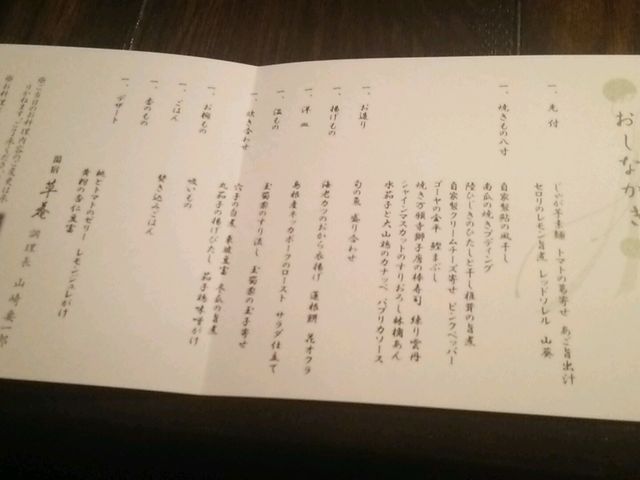 おしながき
一、先付
じゃが芋素麺 トマトの葛寄せ あご旨出汁
セロリのレモン旨煮 レッドソレル 山葵
一、焼きもの八寸
自家製鮎の風干し
南瓜の焼きプディング
陸ひじきのひたしと干し椎茸の旨煮
自家製クリームチーズ寄せ ピンクペッパー
ゴーヤの金平 鰹まぶし
焼き万願寺獅子唐の棒寿司 練り雲丹
シャインマスカットのすりおろし林檎あん
水茄子と大山鶏のカナッペ パプリカソース
一、お造り
旬の魚 盛り合わせ
一、揚げもの
海老カツのおから衣揚げ 蓮根餅 花オクラ
一、洋皿
島根産ネッカポークのロースト サラダ仕立て
一、温もの
玉蜀黍のすり流し 玉蜀黍の玉子寄せ
一、炊き合わせ
六子の白煮 東坡豆富 冬瓜の旨煮
丸茄子の揚げびたし 茄子鶏味噌がけ
一、お椀もの
吸いもの
一、ごはん
炊き込みごはん
一、香のもの
一、デザート
桃とトマトのゼリー レモンジュレがけ
黄粉の杏仁豆富
※当日のお料理内容のご変更は承
りかねます。ご了承ください。
※お料理
調理長 山崎要一郎